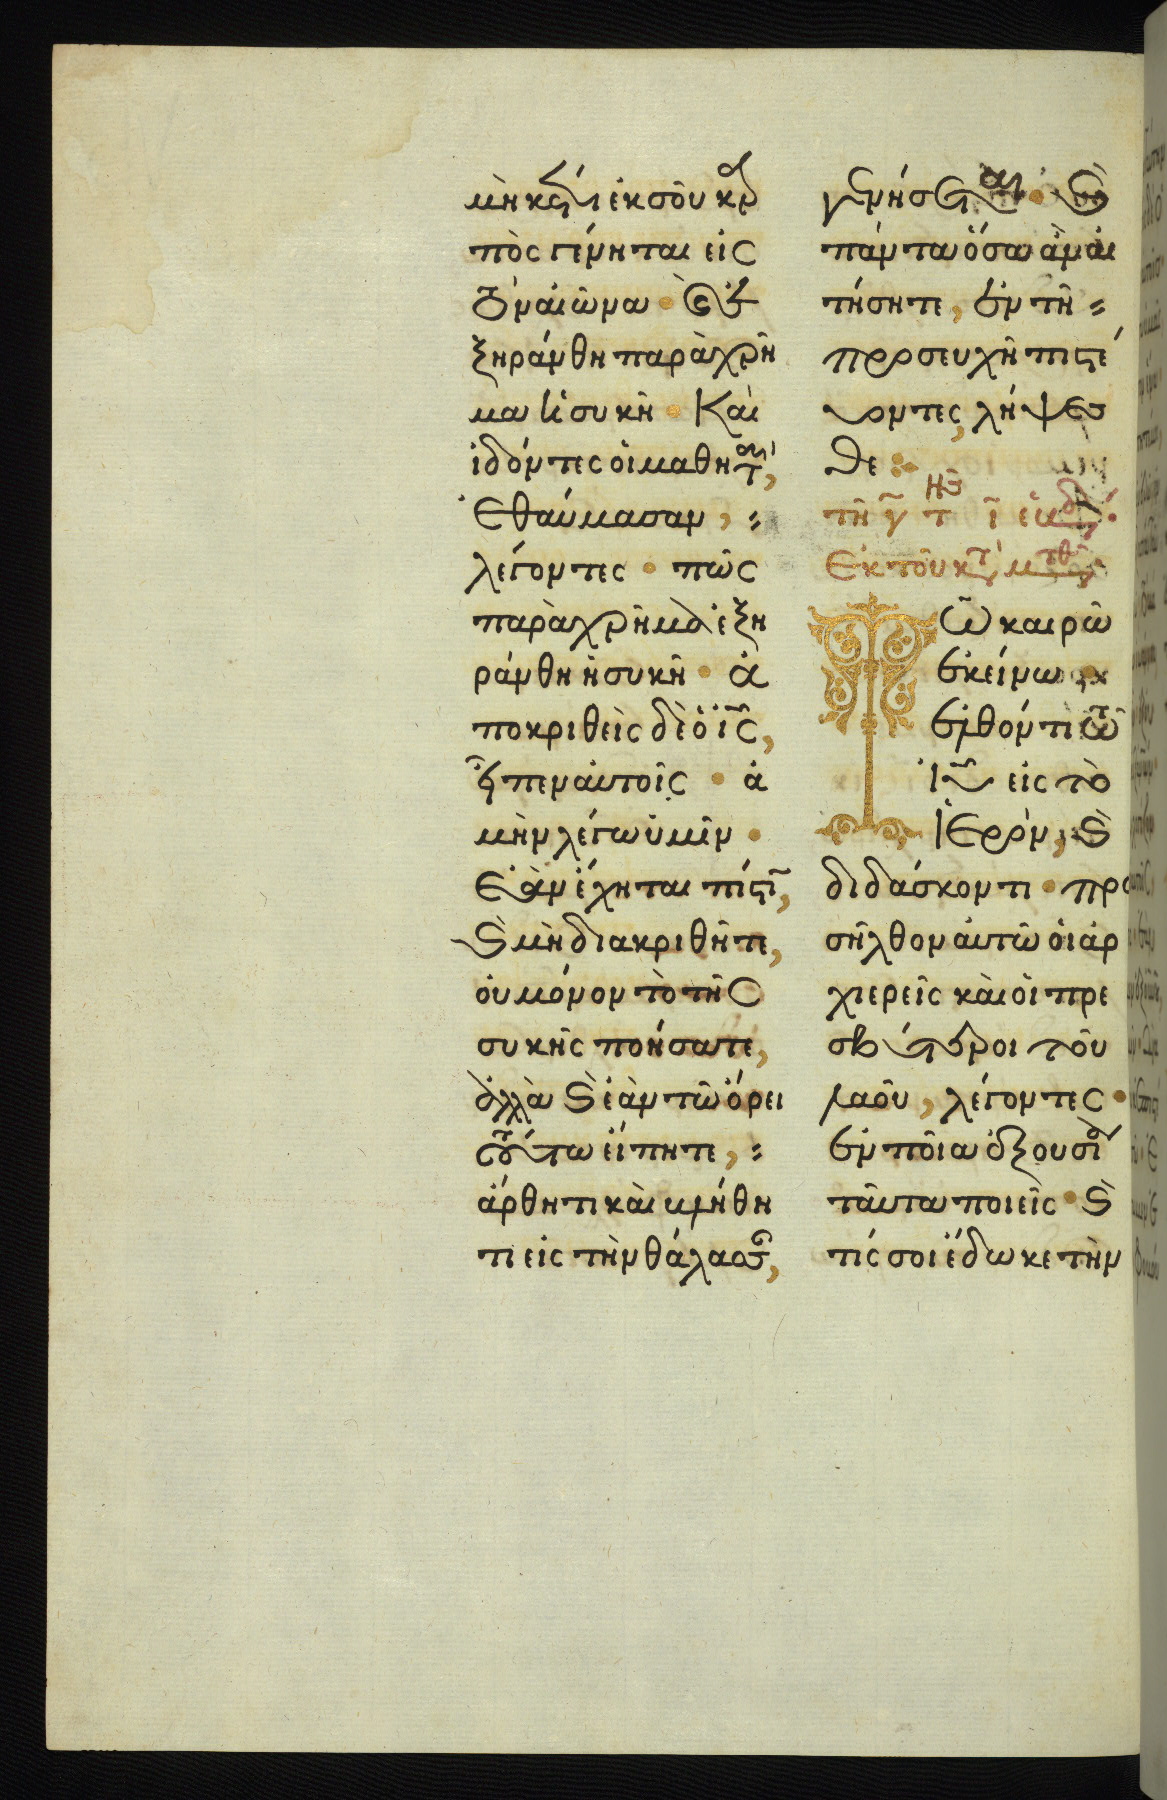 μὴ κέτι ἐκ σοῦ καρ
πὸς γένηται εἰς
τὸν αἰῶνα · καὶ ἐ
ξηράνθη παρὰχρῆ
μα ἡ συκῆ · Καὶ
ἰδόντες οἱ μαθηταὶ,
Ἐθαύμασαν, =
λέγοντες · πῶς
παρὰχρῆμα ἐξη
ράνθη ἡ συκῆ · ἀ
ποκριθεὶς δὲ ὁ ις,
εἶπεν αὐτοῖς · ἀ
μὴν λέγω ὑμῖν ·
Ἐὰν ἔχηται πίστιν,
καὶ μὴ διακριθῆτε,
οὐ μόνον τὸ τῆς
συκῆς ποιήσατε,
ἀλλὰ καὶ ἐὰν τῶ ὄρει
τούτω εἴπητε, =
ἄρθητι καὶ βλήθη
τι εἰς τὴν θάλασσαν,
γενήσεται · καὶ
πάντα ὅσα ἂν αἰ
τήσητε, ἐν τῆ =
προσευχῆ πιστεύ
οντες, λήψεσ
θε
τῆ γ τῆς ι ἑβδ.
Ἐκ τοῦ κατ ματθ
Τῶ καιρῶ
ἐκείνω
ἐλθόντι τῶ
ιυ εἰς τὸ
Ἱερὸν, καὶ
διδάσκοντι · προ
σῆλθον αὐτῶ οἱ ἀρ
χιερεῖς καὶ οἱ πρε
σβύτεροι τοῦ
λαοῦ, λέγοντες ·
ἐν ποία ἐξουσία
ταῦτα ποιεῖς · καὶ
τίς σοι ἔδωκε τὴν